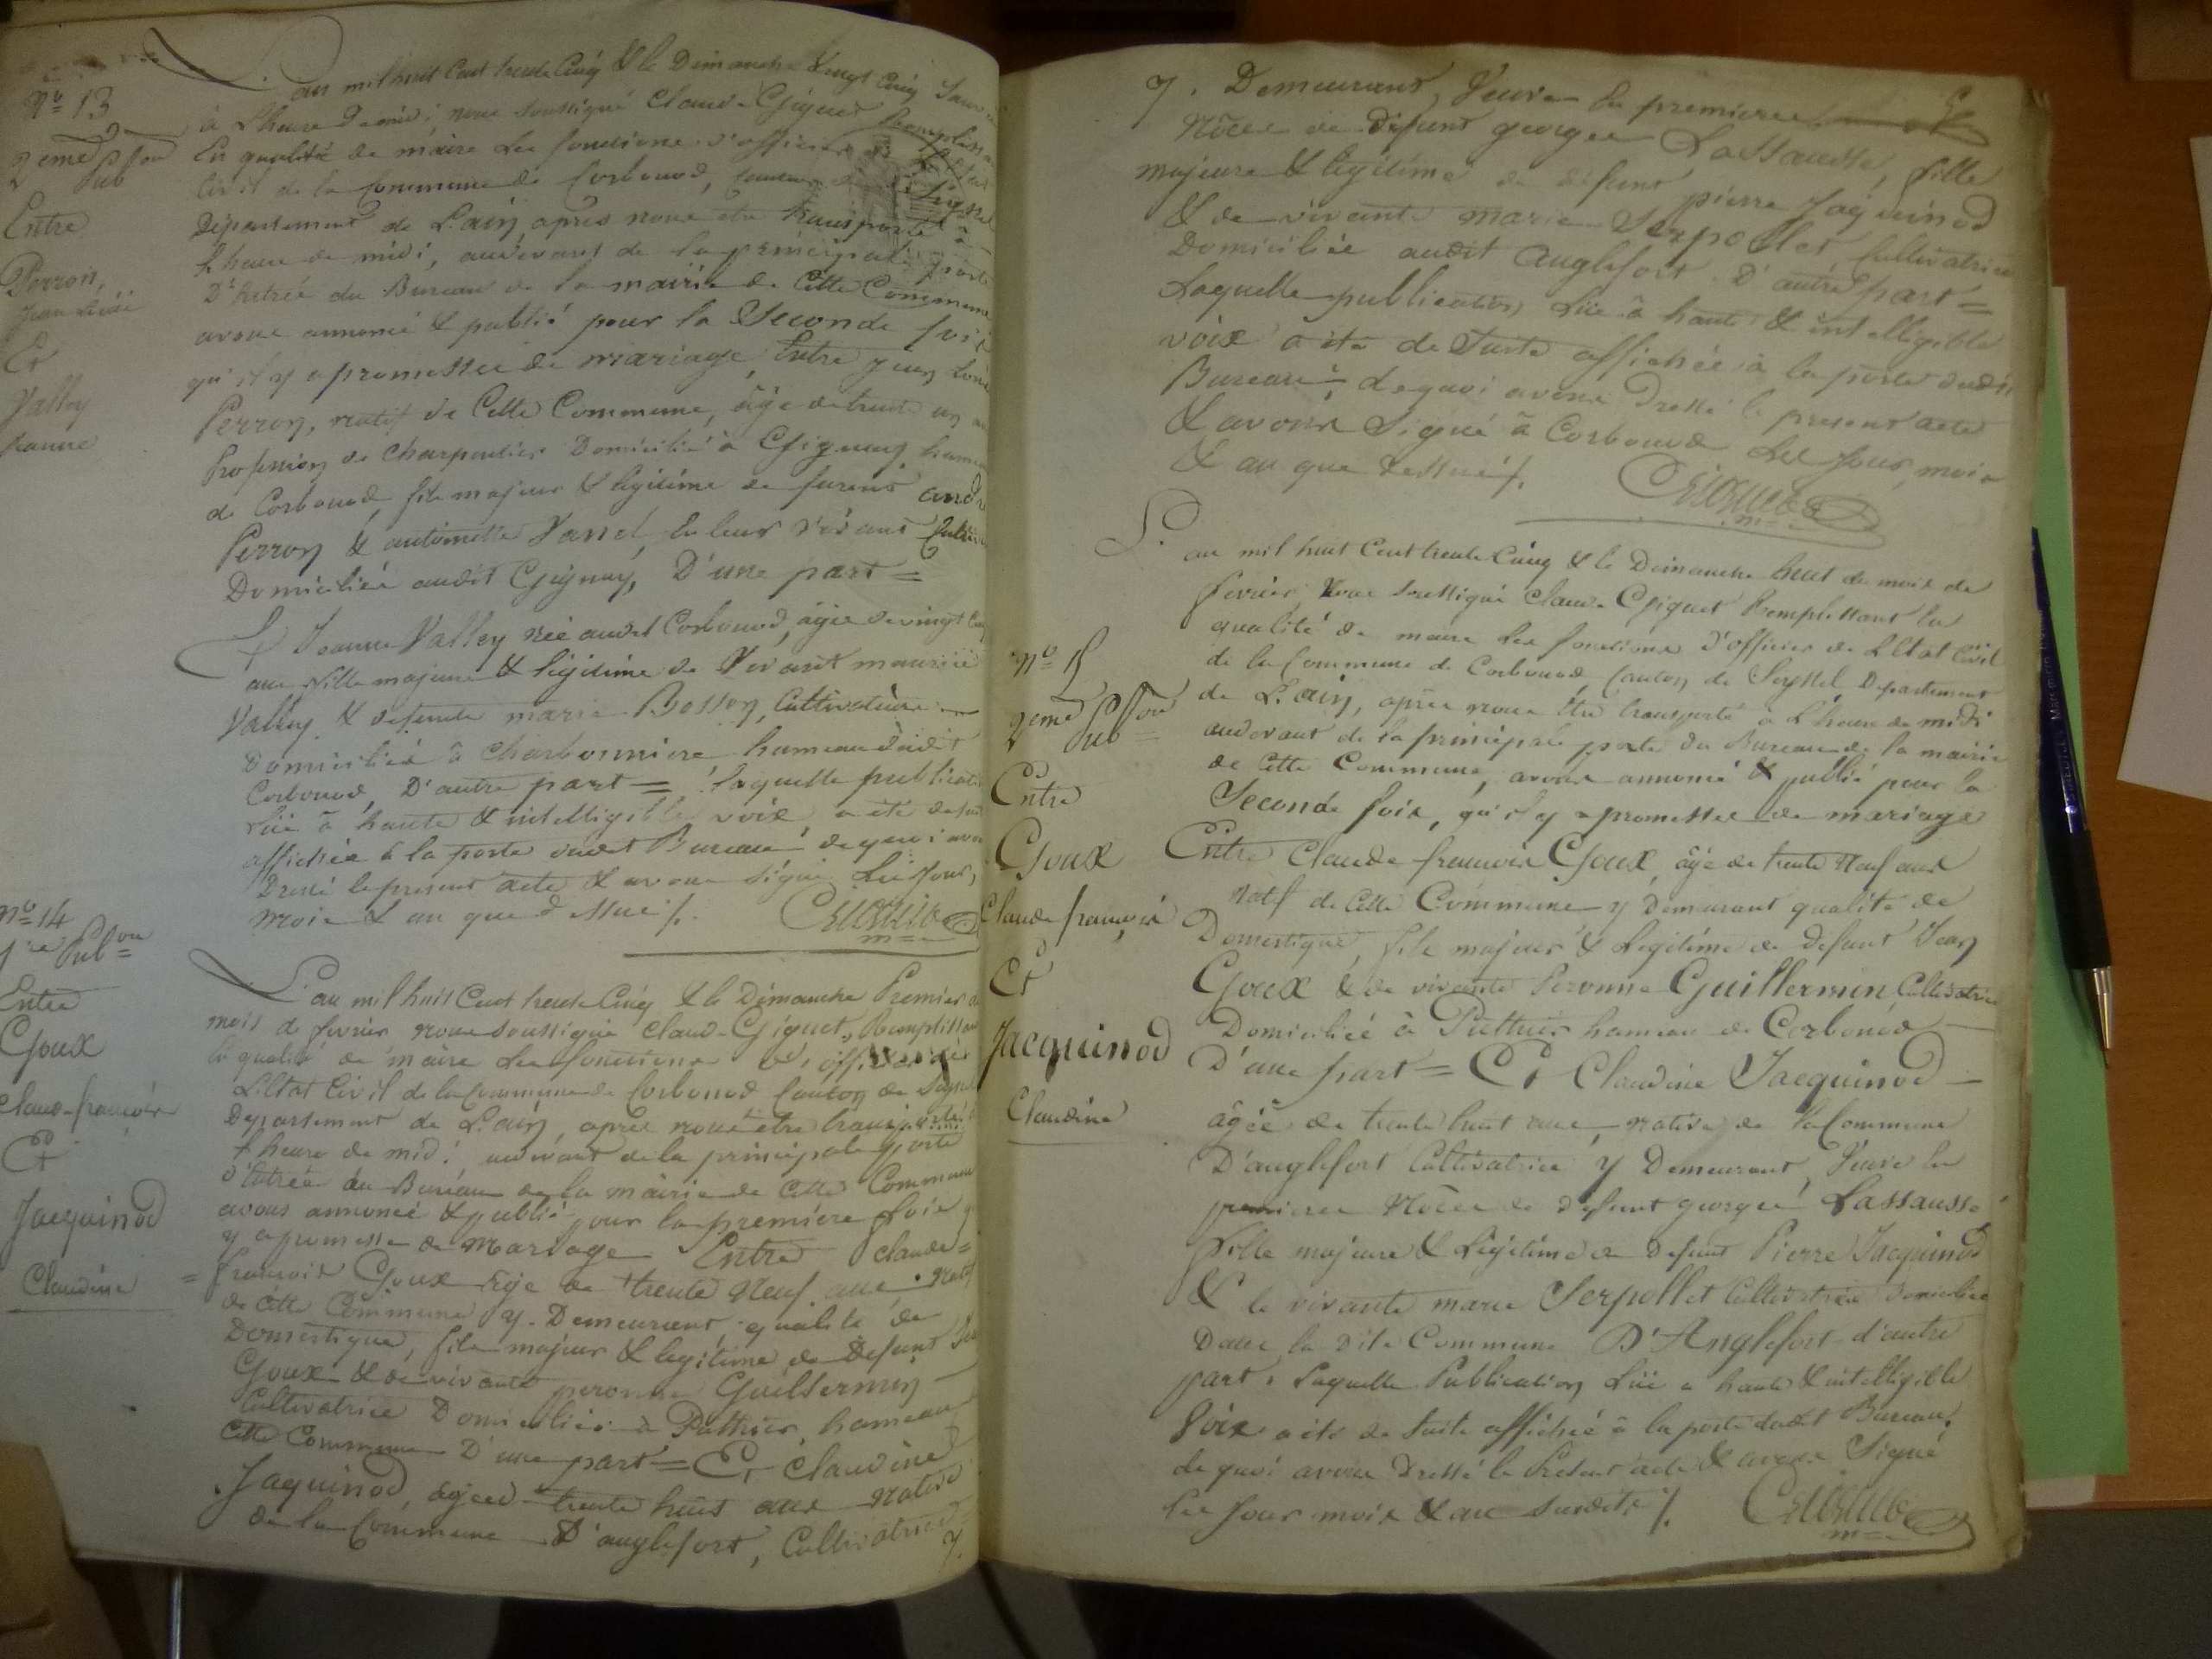 N° 13
2eme p^on
Pub
Entre
Perron,
Jean Louis
Et
Valley
Jeanne
L'an mil huit Cent trente Cinq & le Dimanche Vingt Cinq Janv
à L'heure de midi; nous soussigné Claude Gignet Remplissa
En qualité de maire Les fonctions d'officier de
Civil de la Commune de Corbonod, Canton de Seyssel
Département de L'ain, après nous être transporté à
L'heure de midi, audevant de la principale porte
D'Entrée du Bureau de la mairie de Cette Commune
avons annoncé & publié pour la Seconde fois
qu'il y a promesses de mariage, Entre Jean Louis
Perron, natif de Cette Commune, âgé de trente un an
Profession de Charpentier Domicilié à Gignez hameau
de Corbonod, fils majeur & légitime de furent andr
Perron & antoinette Vanel, En leur vivant Cultiv
Domiciliés audit Gignez, D'une part =
Et Jeanne Valley née audit Corbonod, âgée de vingt Cinq
ans fille majeure & légitime de Vivant maurice
Valley & défunte marie Bosson, Cultivateurs
Domiciliés à Charbonniere hameau dudit
Corbonod, D'autre part = laquelle publicati
lüe à haute & intelligible voix a été de sui
affichée à la porte dudit Bureau; de quoi avon
Dressé le présent acte & avons signé Les Jour,
mois & an que dessus /.
N° 14
1re Pub^on
Entre
Goux
Claude-françois
Et
Jacquinod
Claudine
L'an mil huit Cent trente Cinq & le Dimanche Premier du
mois de février nous soussigné Claude Gignet, Remplissan
la qualité de maire Les fonctions d'officier de
L'Etat Civil de la Commune de Corbonod Canton de Seyss
Département de L'ain, après nous être transporté à
l'heure de midi, audevant de la principale porte
d'Entrée du Bureau de la mairie de Cette Commune
avons annoncé & publié pour la première fois q
y a promesse de Mariage Entre Claude=
=françois Goux âgé de trente Neuf ans, natif
de cette Commune y Demeurant qualité de
Domestique, fils majeur & légitime de Défunt Jea
Goux & de vivante peronne Guillermin
Cultivatrice Domiciliée à Puthier, hameau
Cette Commune D'une part = Et Claudine
Jaquinod, âgée de trente huit ans native
de la Commune D'anglefort, Cultivatrice
y.
y. Demeurant, Veuve En premieres
Nôces de défunt george Lassausse, fille
majeure & légitime de défunt pierre Jaquinod
& de vivante marie Serpollet, Cultivatrice
Domiciliée audit anglefort D'autre part =
Laquelle publication lüe à haute & intelligible
voix a été de suite affichée à la porte dudit
Bureau; de quoi avons Dressé le present acte
& avons Signé à Corbonod Les Jour, mois
& an que dessus /.
N° 15
2eme p^on
Pub
Entre
Goux
Claude françois
Et
Jacquinod
Claudine
L'an mil huit Cent trente Cinq & le Dimanche huit du mois de
février Nous soussigné Claude Gignet Remplissant la
qualité de maire Les fonctions d'officier de L'Etat Civil
de la Commune de Corbonod, Canton de Seyssel, Département
de L'ain, après nous être transporté à L'heure de midi
audevant de la principale porte du Bureau de la mairie
de Cette Commune, avons annoncé & publié pour la
Seconde fois, qu'il y a promesses de mariage
Entre Claude françois Goux, âgé de trente Neuf ans
Natif de Cette Commune y Demeurant qualité de
Domestique, fils majeur & Légitime de défunt Jean
Goux & de vivante Peronne Guillermin Cultivatrice
Domiciliée à Puthier hameau de Corbonod
D'une part = Et Claudine Jacquinod
âgée de trente huit ans, native de la Commune
D'anglefort Cultivatrice y Demeurant, Veuve En
premieres Nôces de défunt george Lassausse
fille majeure & Légitime de Défunt Pierre Jacquinod
& de vivante marie Serpollet Cultivatrice domiciliée
Dans la Dite Commune D'Anglefort d'autre
part. Laquelle Publication Lüe a haute & intelligible
Voix a été de Suite affichée à la porte dudit Bureau;
de quoi avons Dressé le Présent acte & avons Signé
Les Jour mois & an Susdits /.